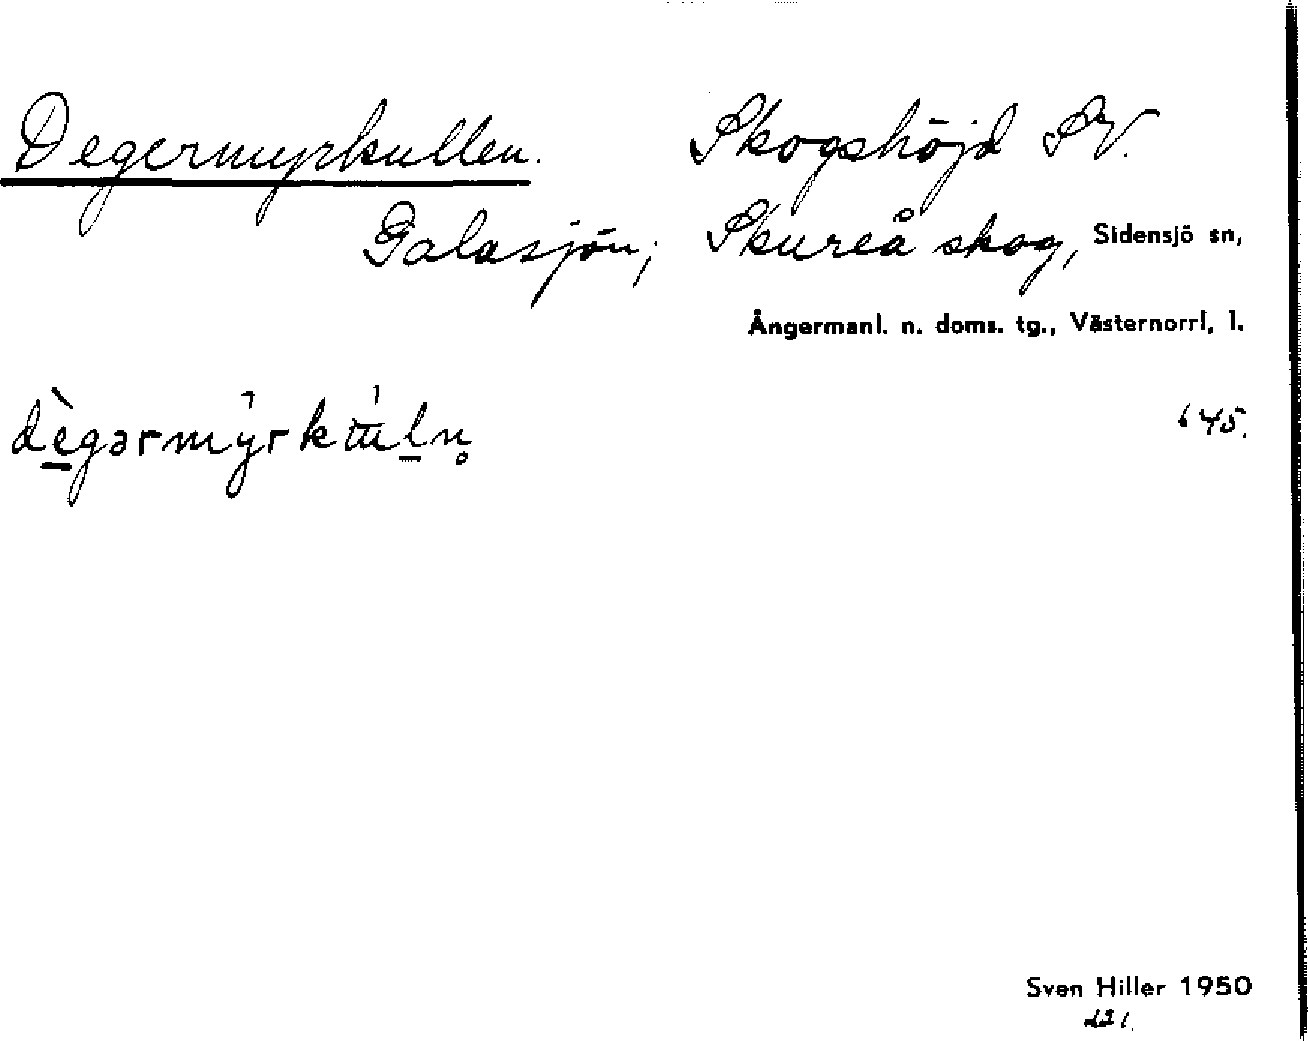 Degermyrkullen. Skogshöjd SV.
Galasjön, Skureå skog, Sidensjö sn,
Ångermanl. n. doms. tg., Västernorrl. l.
645.
Sven Hiller 1950